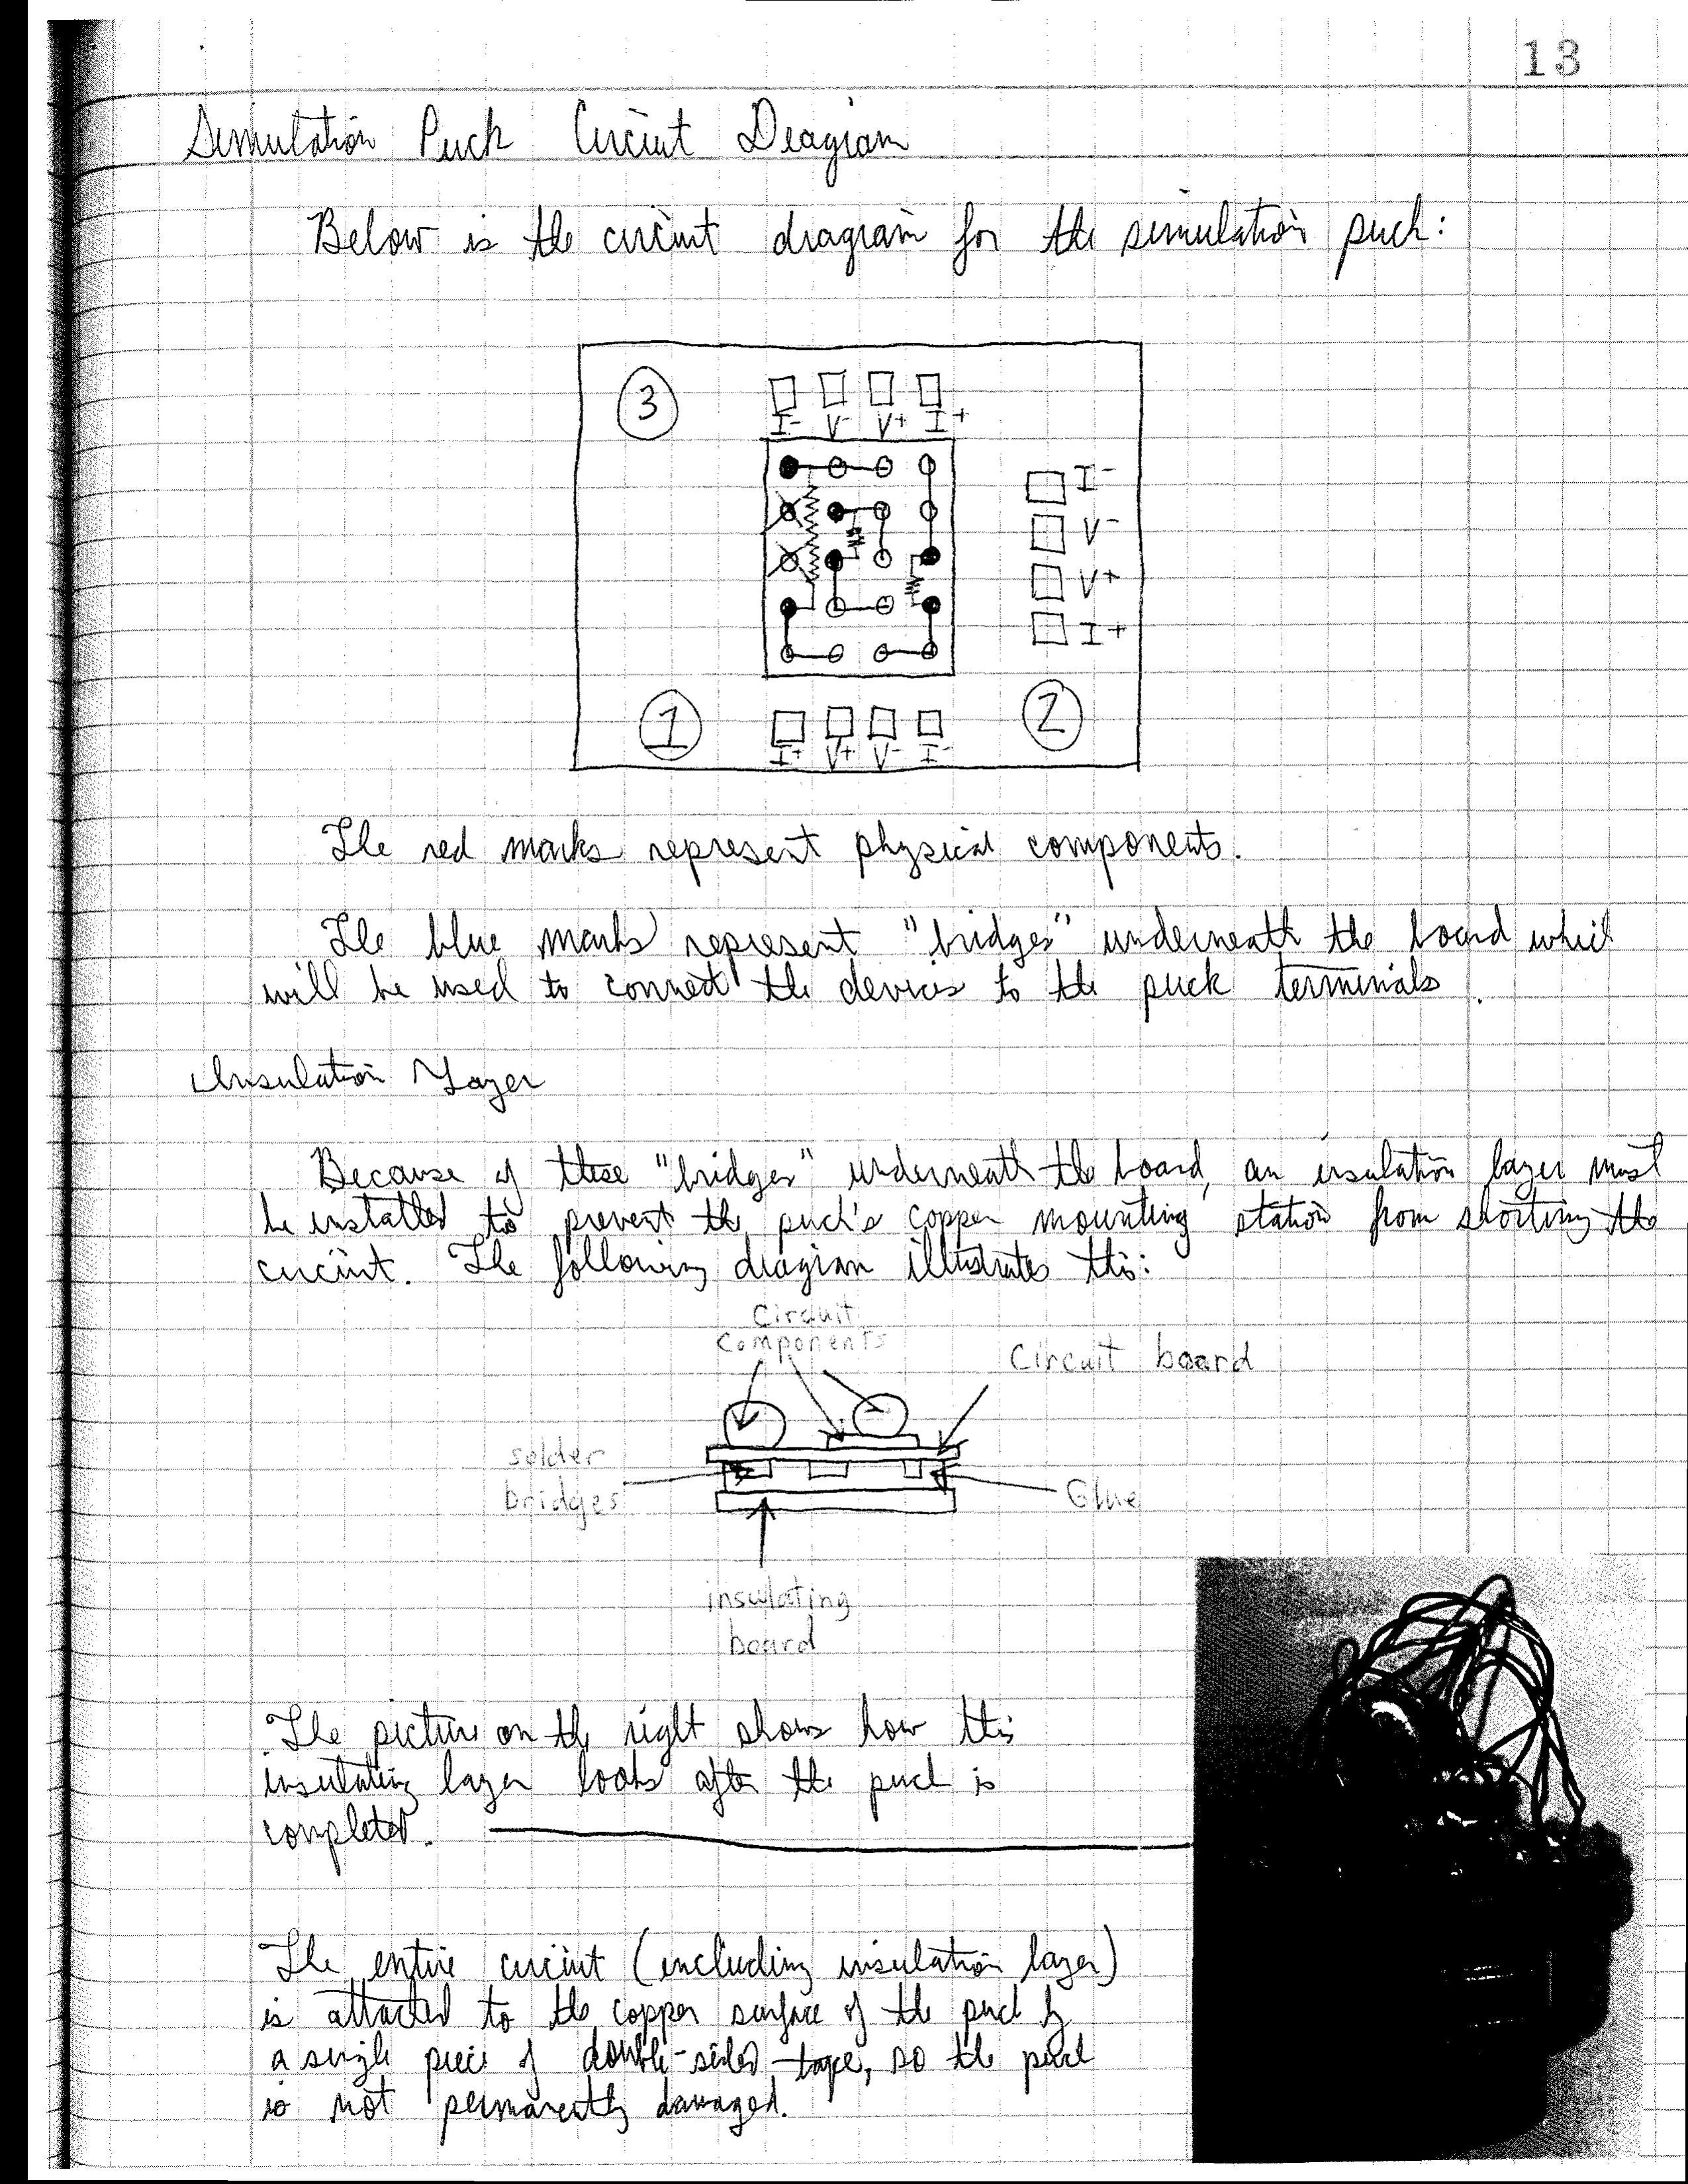 13
Simulation Puck Circuit Diagram
Below is the circuit diagram for the simulation puck:
3
I- V- V+ I+
I-
V-
V+
I+
1
2
I+ V+ V- I-
The red marks represent physical components.
The blue marks represent "bridges" underneath the board which
will be used to connect the devices to the puck terminals.
Insulation Layer
Because of these "bridges" underneath the board, an insulation layer must
be installed to prevent the puck's copper mounting station from shorting the
circuit. The following diagram illustrates this:
Circuit
Components
Circuit board
solder
bridges
Glue
insulating
board
The picture on the right shows how this
insulating layer looks after the puck is
completed.
The entire circuit (including insulation layer)
is attached to the copper surface of the puck by
a single piece of double-sided tape, so the puck
is not permanently damaged.